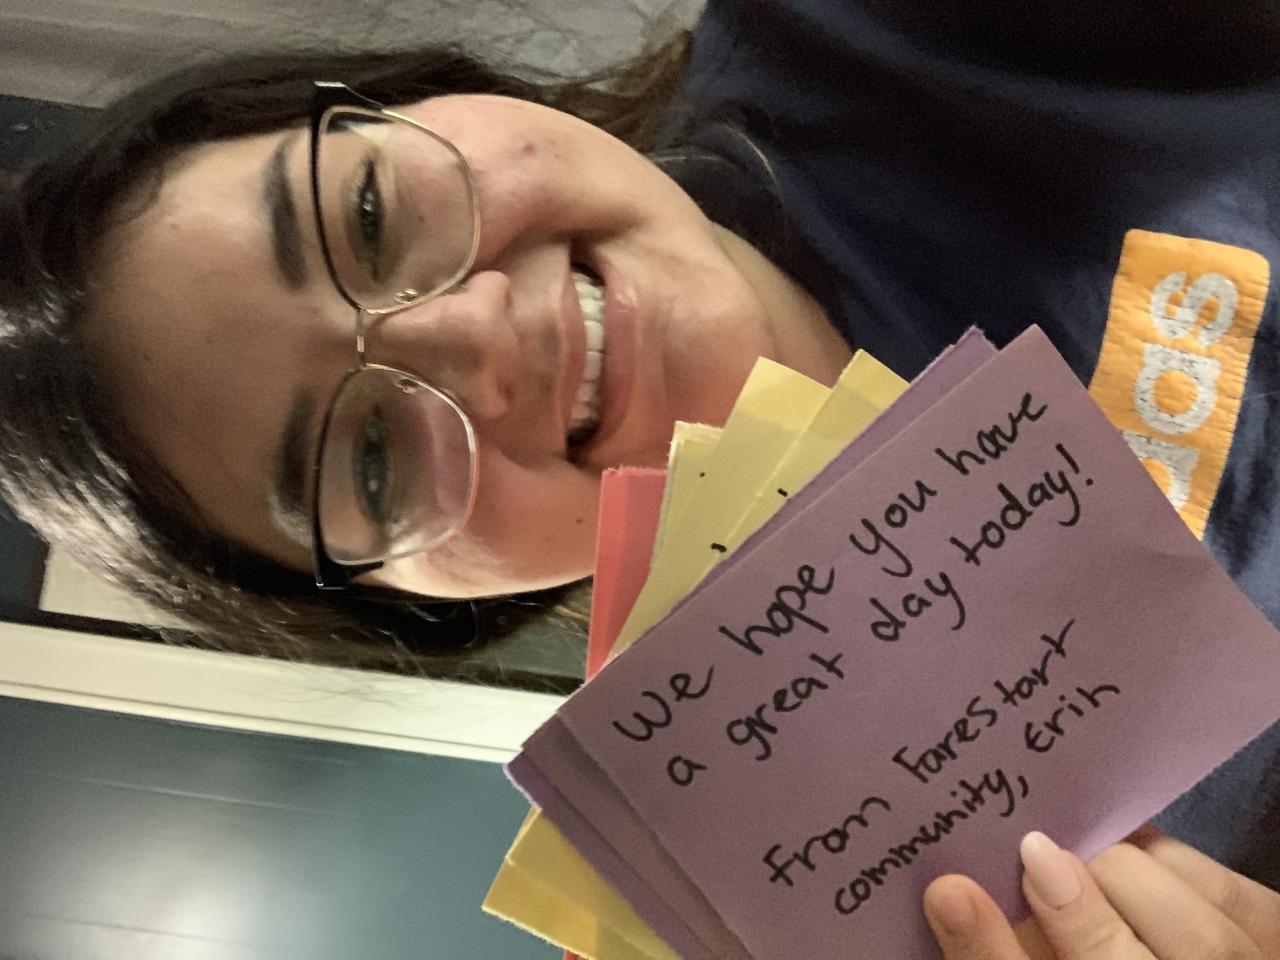 We hope you have
a great day today!
From Farestart
community, Erin
das